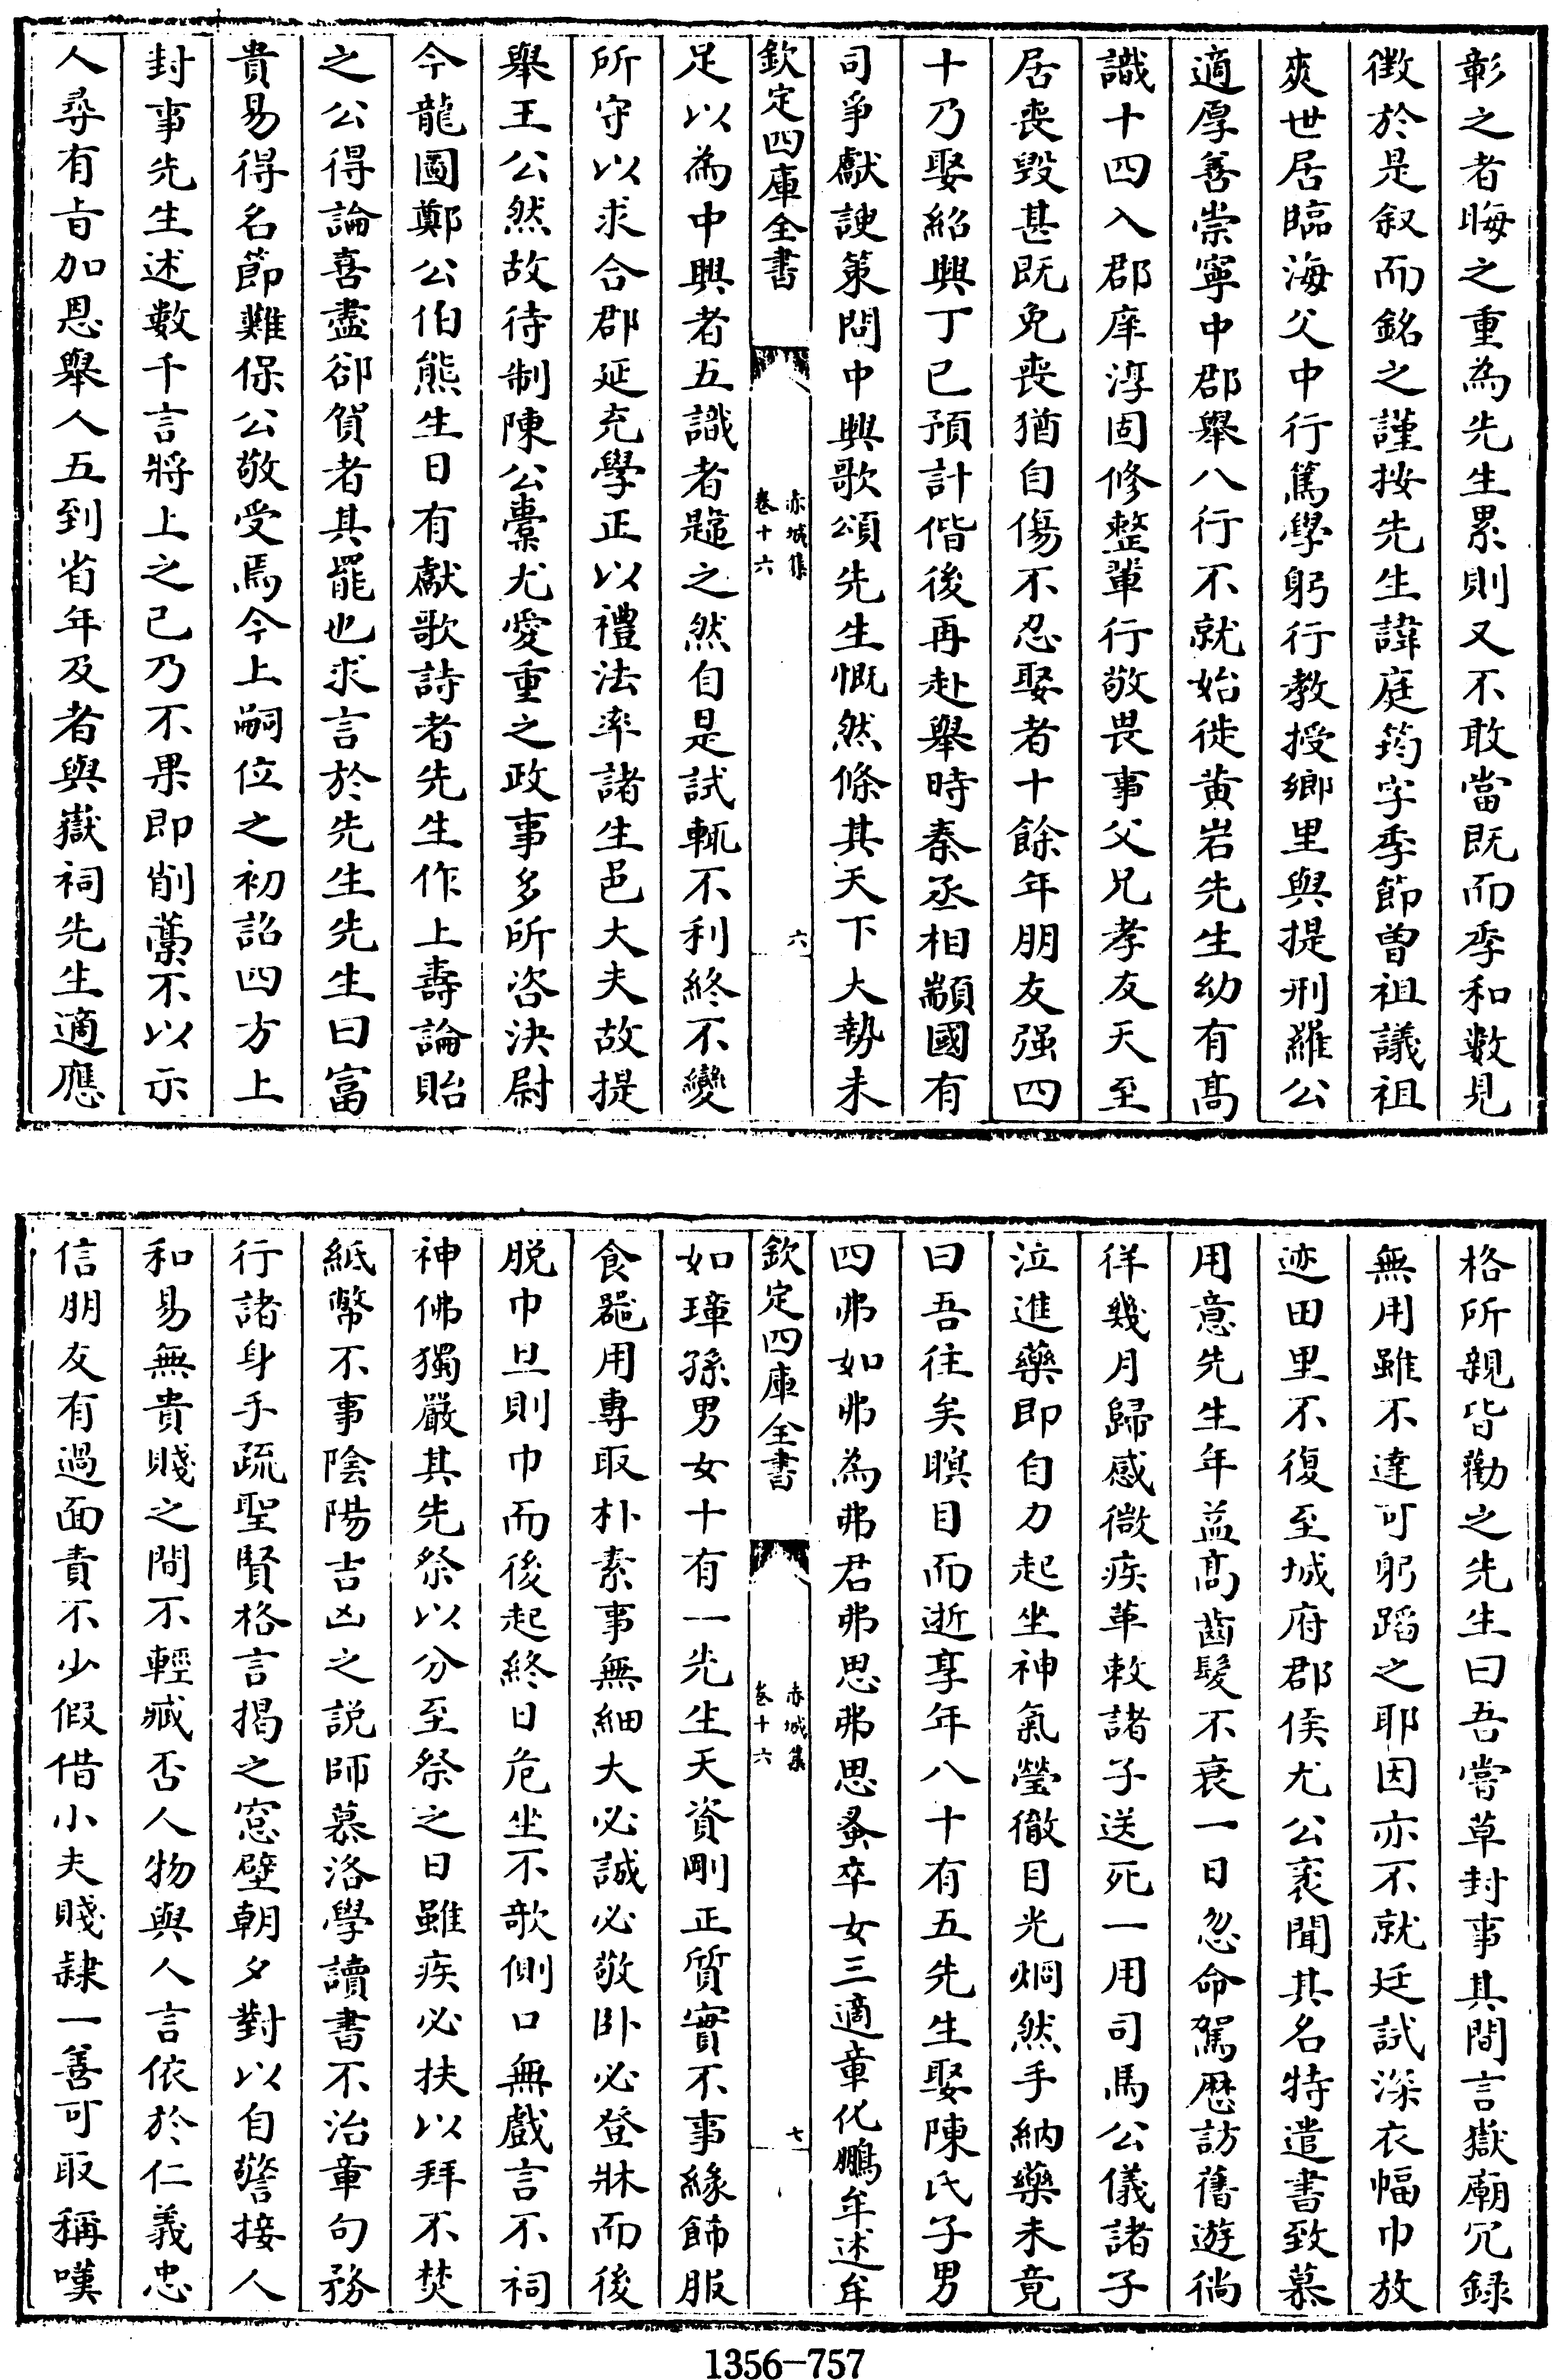 彰之者晦之重為先生累則又不敢當既而季和數見
徴於是叙而銘之謹按先生諱庭筠字季節曽祖議祖
爽世居臨海父中行篤學躬行教授鄉里與提刑羅公
適厚善崇寧中郡舉八行不就始徙黄岩先生幼有髙
識十四入郡庠淳固修整輩行敬畏事父兄孝友天至
居喪毀甚既免喪猶自傷不忍娶者十餘年朋友强四
十乃娶紹興丁已預計偕後再赴舉時秦丞相顓國有
司爭獻諛策問中興歌頌先生慨然條其天下大勢未
欽定四庫全書
赤城集
卷十六
六
足以為中興者五識者韙之然自是試輒不利終不變
所守以求合郡延充學正以禮法率諸生邑大夫故提
舉王公然故待制陳公橐尤愛重之政事多所咨決尉
今龍圖鄭公伯熊生日有獻歌詩者先生作上壽論貽
之公得論喜盡卻賀者其罷也求言於先生先生曰富
貴易得名節難保公敬受焉今上嗣位之初詔四方上
封事先生述數千言將上之已乃不果即削藁不以示
人尋有旨加恩舉人五到省年及者與嶽祠先生適應
格所親皆勸之先生曰吾嘗草封事其間言嶽廟冗録
無用雖不達可躬蹈之耶因亦不就廷試深衣幅巾放
迹田里不復至城府郡侯尤公袤聞其名特遣書致慕
用意先生年益髙齒髮不衰一日忽命駕歴訪舊遊徜
徉幾月歸感微疾革敕諸子送死一用司馬公儀諸子
泣進藥即自力起坐神氣瑩徹目光炯然手納藥未竟
曰吾往矣瞑目而逝享年八十有五先生娶陳氏子男
四弗如弗為弗君弗思弗思蚤卒女三適章化鵬牟述牟
欽定四庫全書
赤城集
卷十六
七
如璋孫男女十有一先生天資剛正質實不事緣飾服
食器用專取朴素事無細大必誠必敬卧必登牀而後
脱巾旦則巾而後起終日危坐不欹側口無戲言不祠
神佛獨嚴其先祭以分至祭之日雖疾必扶以拜不焚
紙幣不事陰陽吉凶之説師慕洛學讀書不治章句務
行諸身手疏聖賢格言揭之窓壁朝夕對以自警接人
和易無貴賤之間不輕臧否人物與人言依於仁義忠
信朋友有過面責不少假借小夫賤隷一善可取稱嘆